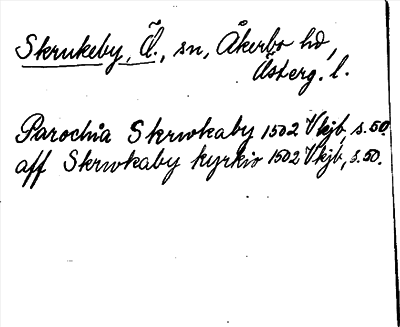 Skrukeby, Ö., sn, Åkerbo hd,
Österg. l.
Parochia Skrwkaby 1502 Vkjb, s. 50.
aff Skrwkaby kyrkio 1502 Vkjb, s. 50.